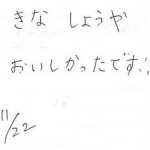 きな しょうや
おいしかったです!!
11/22